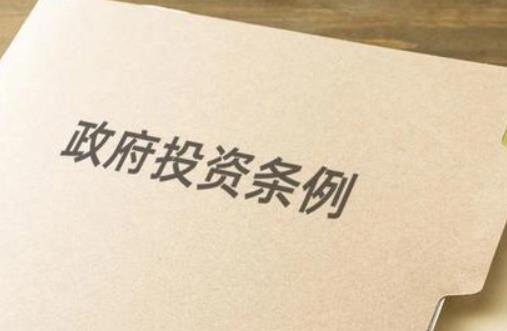 政府投资条例